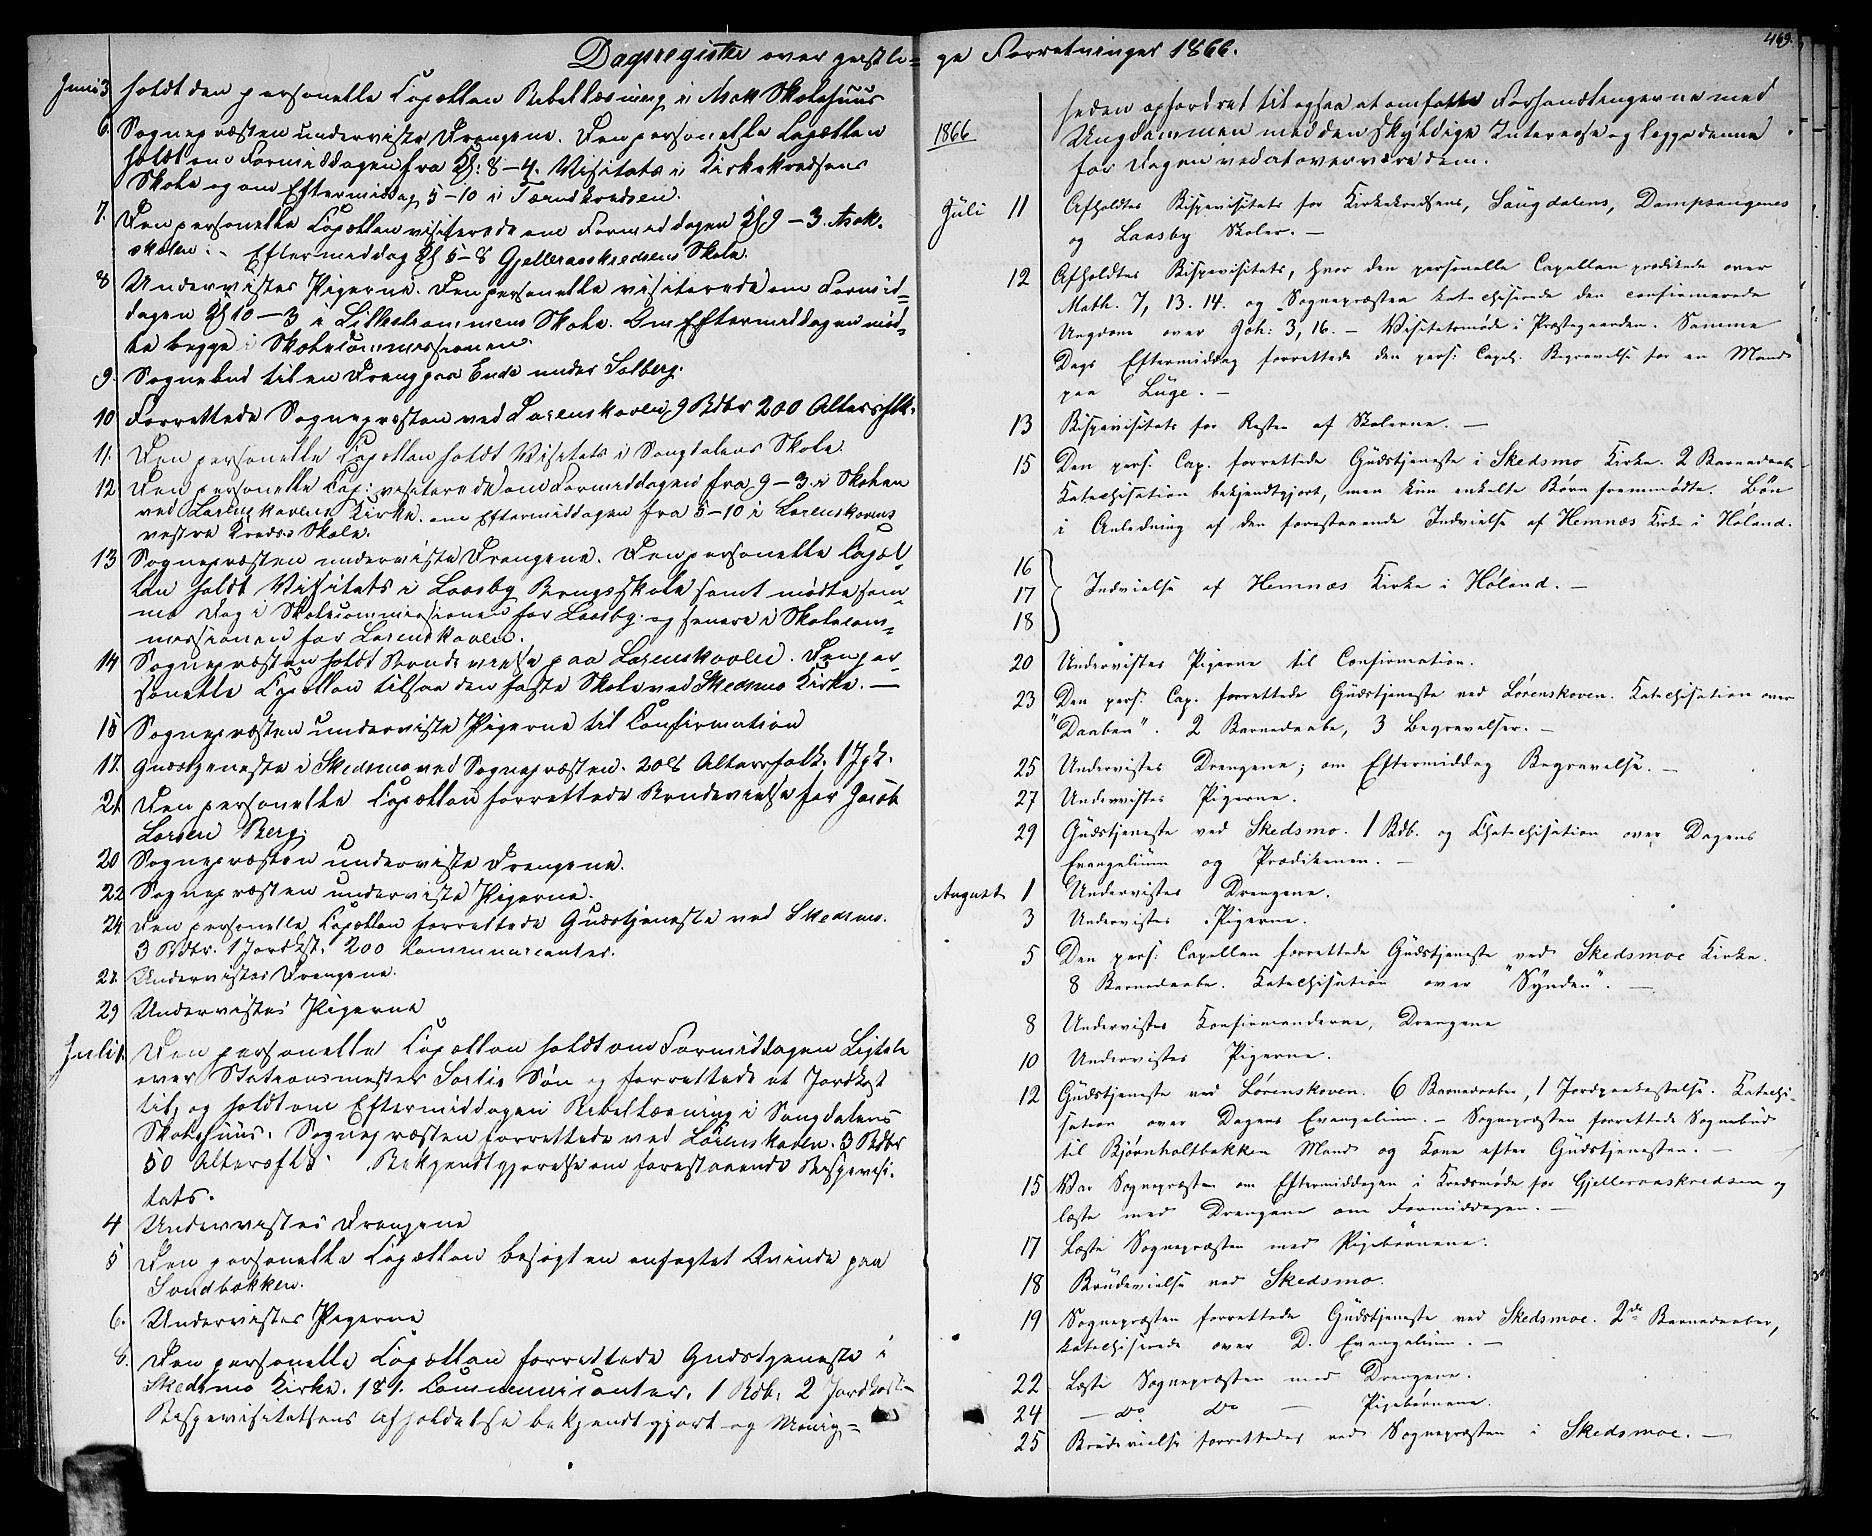 Dagsregister over geistli-
Juni 3 holdt den personelle Capellan Bibellæsning i Asak Skolehuus
6. Sognepræsten underviste Drengene. Den personelle Capellan
holdt om Formiddagen fra Kl: 8–4. Visitats i Kirkekredsens
Skole og om Eftermiddag 5–10 i Tærudkredsen.
7. Den personelle Capellan visiterede om Formiddagen Kl 9–3. Asak
skolen. – Eftermiddag Kl 5–8 Gjelleraaskredsens Skole.
8 Undervistes Pigerne. Den personelle visiterede om Formid-
dagen Kl 10–3 i Lillestrømmens Skole. Om Eftermiddagen mød-
te begge i Skolecommissionen.
9. Sognebud til en Dreng paa Ende under Solberg.
10 Forrettede Sognepræsten ved Lørenskoven 9 Bdbr 200 Altersflk.
11. Den personelle Capellan holdt Visitats i Sangdalens Skole.
12 Den personelle Cap: visiterede om Formiddagen fra 9–3 i Skolen
ved Lørenskovens Kirke. om Eftermiddagen fra 5–10 i Lørenskovens
vestre Kredses Skole.
13 Sognepræsten underviste Drengene. Den personelle Capel-
lan holdt Visitats i Laasby Skole samt mødte sam-
me Dag i Skolecommissionen for Laasby og senere i Skolecom-
missionen for Lørenskoven.
14 Sognepræsten holdt Brudevielse paa Lørenskoven. Den per-
sonelle Capellan tilsaa den faste Skole ved Skedsmo Kirke. —
15 Sognepræsten underviste Pigerne til Confirmation
17. Gudstjeneste i Skedsmo ved Sognepræsten. 208 Altersfolk. 1 Jpk.
21. Den personelle Capellan forrettede Brudevielse for Jacob
Larsen Berg.
20 Sognepræsten underviste Drengene.
22 Sognepræsten underviste Pigerne.
24 Den personelle Capellan forrettede Gudstjeneste ved Skedsmo.
3 Bdbr. 1 Jordkst. 200 Communicanter.
27. Undervistes Drengene.
29 Undervistes Pigerne
Juli 1. Den personelle Capellan holdt om Formiddagen Ligtale
over Stationsmester Søn og forrettede et Jordkast
til, og holdt om Eftermiddagen Bibellæsning i Sangdalens
Skolehuus. Sognepræsten forrettede ved Lørenskoven. 3 Bdbr
50 Altersflk. Bekjendtgjørelse om forestaaende Bispevisi-
tats.
4 Undervistes Drengene
5 Den personelle Capellan besøgt en anfegtet Qvinde paa
Sandbakken.
6. Undervistes Pigerne
8. Den personelle Capellan forrettede Gudstjeneste i
Skedsmo Kirke. 181. Communicanter. 1 Bdb. 2 Jordkast.
Bispevisitatsens Afholdelse bekjendtgjort og Menig-
ge Forretninger 1866.
469.
heden opfordret til ogsaa at omfatte Forhandlingerne med
1866 Ungdommen med den skyldige Interesse og lægge denne
for Dagen ved at overvære dem.
Juli 11 Afholdtes Bispevisitats for Kirkekredsens, Sangdalens, Dampsaugenes
og Laasby Skoler. —
12 Afholdtes Bispevisitats, hvor den personelle Capellan prædikede over
Math. 7, 13. 14. og Sognepræsten katechiserede den confirmerede
Ungdom over Joh: 3, 16. – Visitatsmøde i Præstegaarden. Samme
Dags Eftermiddag forrettede den pers: Capel. Begravelse for en Mand
paa Lüge. —
13 Bispevisitats for Resten af Skolerne. —
15 Den pers. Cap. forrettede Gudstjeneste i Skedsmo Kirke. 2 Barnedaabe
Katechisation bekjendtgjort, men kun enkelte Børn fremmødte. Bøn
i Anledning af den forestaaende Indvielse af Hemnæs Kirke i Høland.
16
17 Indvielse af Hemnæs Kirke i Høland. —
18
20 Undervistes Pigerne til Confirmation.
23 Den pers. Cap. forrettede Gudstjeneste ved Lørenskoven. Katechisation over
"Daaben". 2 Barnedaabe, 3 Begravelser. —
25 Undervistes Drengene; om Eftermiddag Begravelse. —
27 Undervistes Pigerne.
29 Gudstjeneste ved Skedsmo. 1 Bdb. og Chatechisation over Dagens
Evangelium og Prædikenen. —
August 1 Undervistes Drengene.
3 Undervistes Pigerne.
5 Den pers: Capellan forrettede Gudstjeneste ved Skedsmoe Kirke.
8 Barnedaabe. Katechisation over "Synden". —
8 Undervistes Konfirmanderne, Drengene
10 Undervistes Pigerne.
12 Gudstjeneste ved Lørenskoven. 6 Barnedaaber, 1 Jordpaakastelse. Katechi-
sation over Dagens Evangelium. – Sognepræsten forrettede Sognebud
til Bjørnholtbakken Mand og Kone efter Gudstjenesten. —
15 Var Sognepræsten om Eftermiddagen i Kredsmøde for Gjelleraaskredsen og
læste med Drengene om Formiddagen. —
17 Læste Sognepræsten med Pigebørnene.
18 Brudevielse ved Skedsmo.
19 Sognepræsten forrettede Gudstjeneste ved Skedsmoe. 2de Barnedaaber,
katechiserede over D. Evangelium. —
22 Læste Sognepræsten med Drengene.
24 — do do — Pigebørnene.
25 Brudevielse forrettedes ved Sognepræsten i Skedsmoe. —